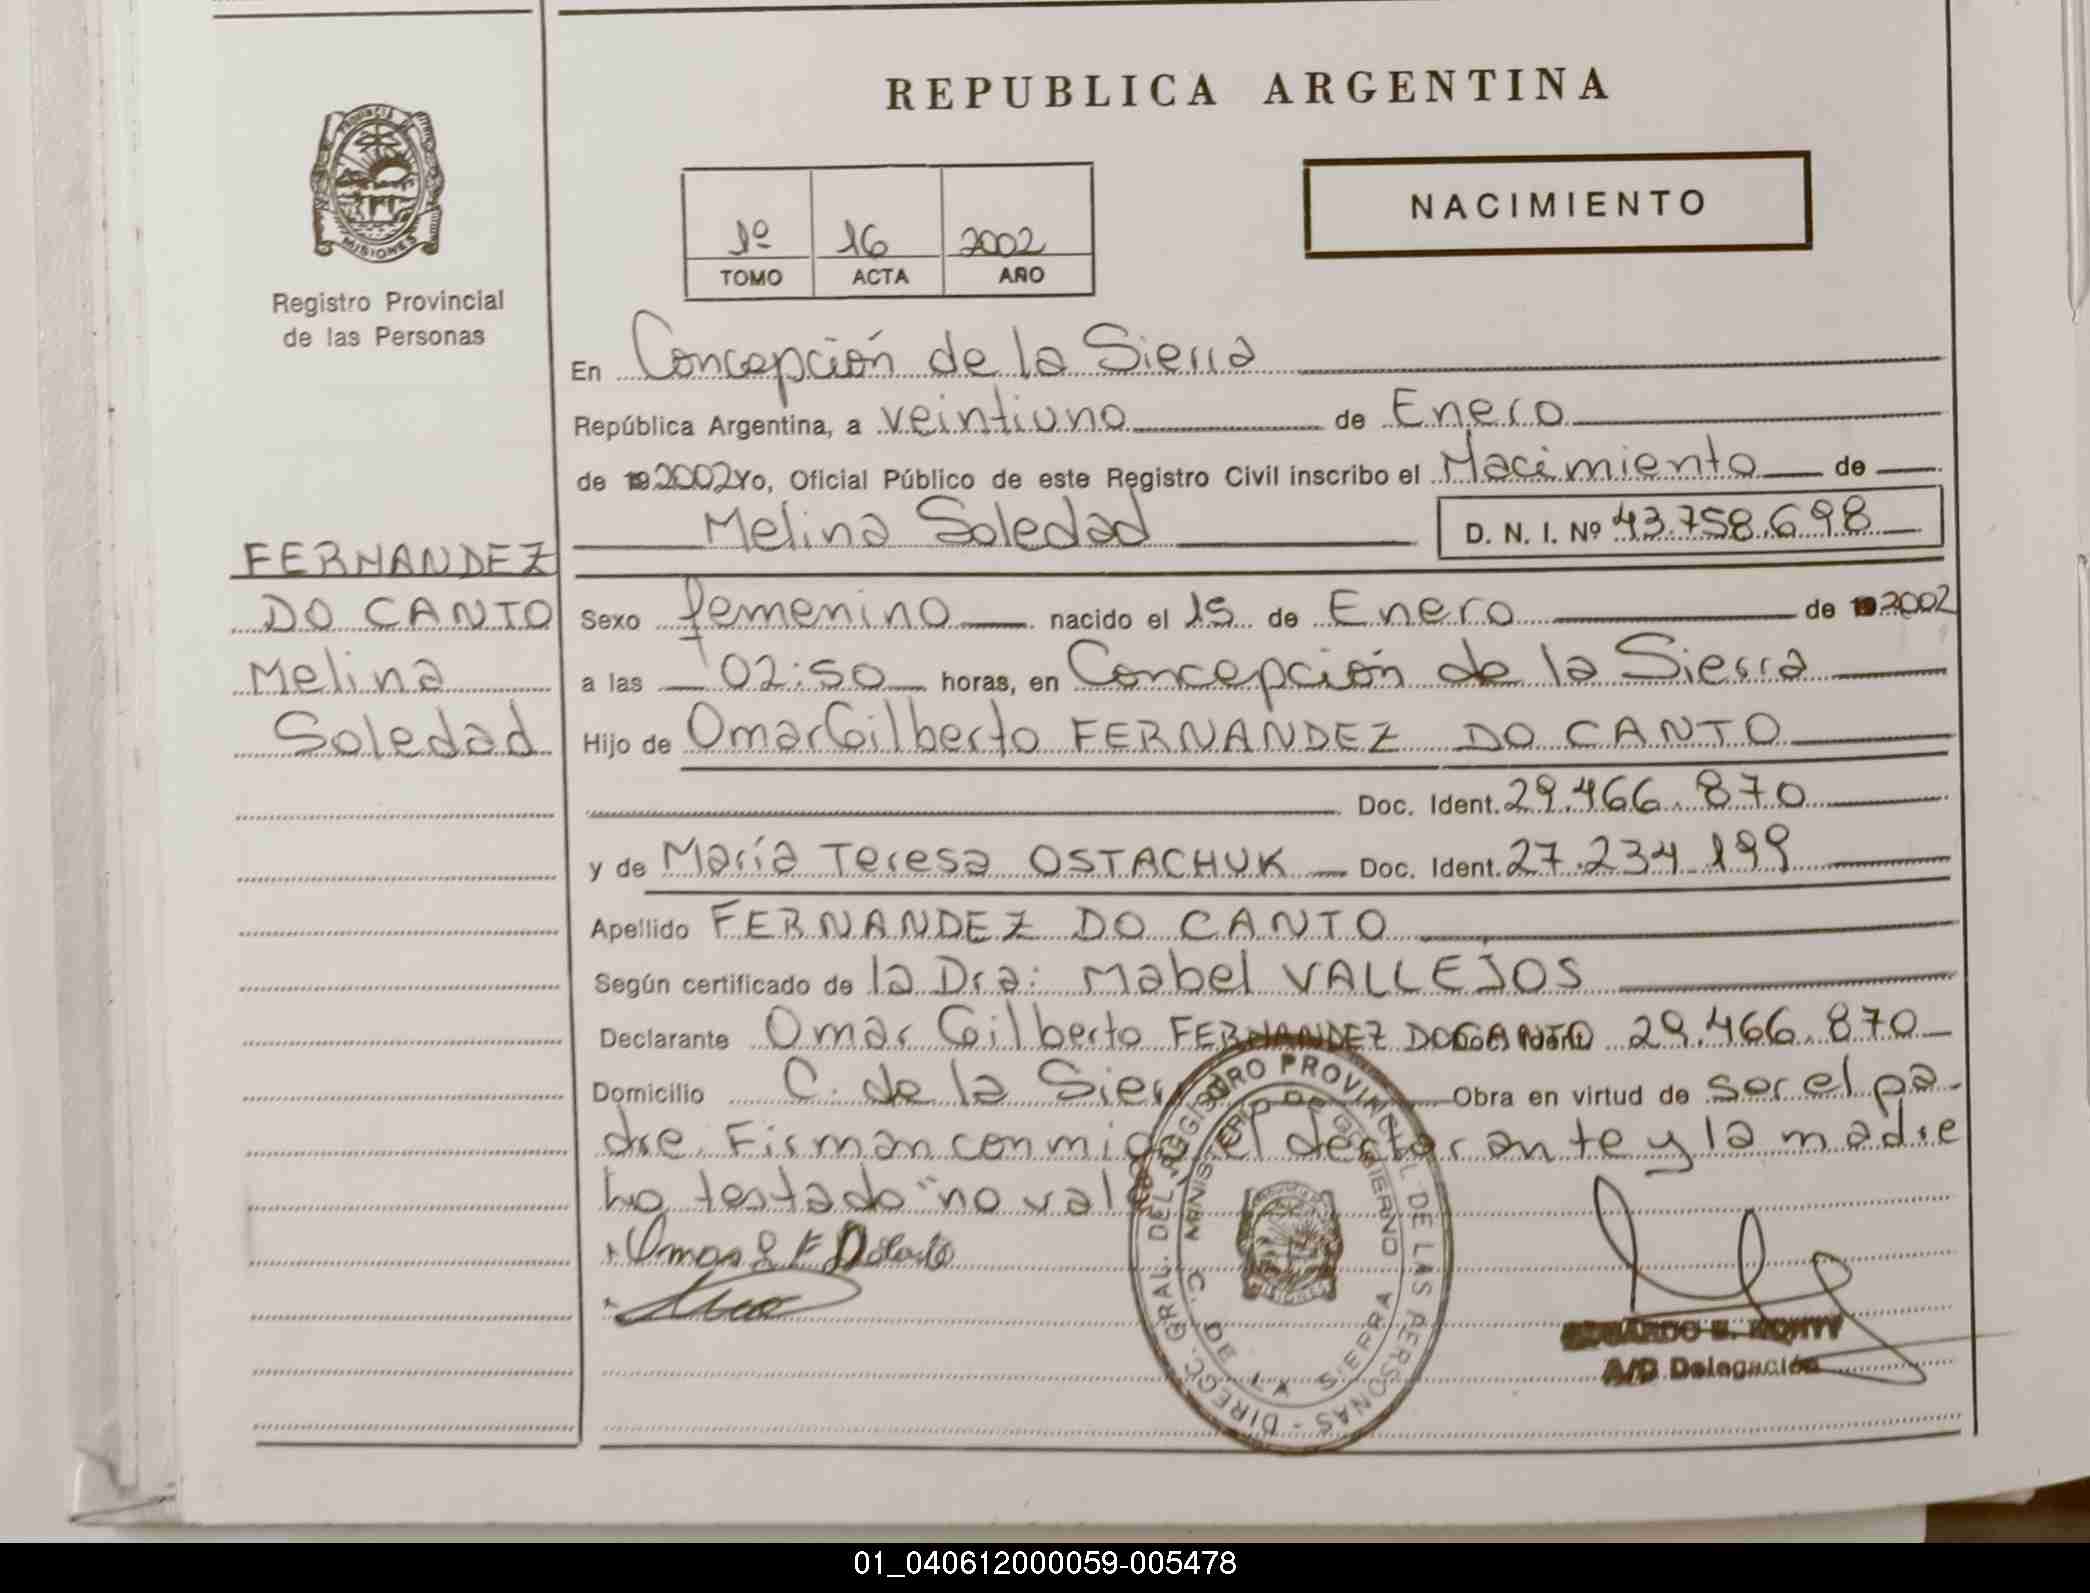 REPUBLICA ARGENTINA
MISIONES
Registro Provincial
de las Personas
NACIMIENTO
1º 16 2002
TOMO ACTA AÑO
En Concepción de la Sierra
República Argentina, a veintiuno de Enero
de 19 2002 Yo, Oficial Público de este Registro Civil inscribo el Nacimiento de
Melina Soledad D. N. I. Nº 43.758.698
FERNANDEZ
DO CANTO
Melina
Soledad
Sexo femenino nacido el 15 de Enero de 19 2002
a las 02:50 horas, en Concepción de la Sierra
Hijo de Omar Gilberto FERNANDEZ DO CANTO
Doc. Ident. 29.466.870
y de María Teresa OSTACHUK Doc. Ident. 27.234.199
Apellido FERNANDEZ DO CANTO
Según certificado de la Dra: Mabel VALLEJOS
Declarante Omar Gilberto FERNANDEZ DO CANTO 29.466.870
Domicilio C. de la Sierra Obra en virtud de ser el pa-
dre. Firman conmigo el declarante y la madre
Lo testado "no vale
Omar G F
DIRECC. GRAL. DEL REGISTRO PROVINCIAL DE LAS PERSONAS -
MINISTERIO DE GOBIERNO
C. DE LA SIERRA
A/C Delegación
01_040612000059-005478